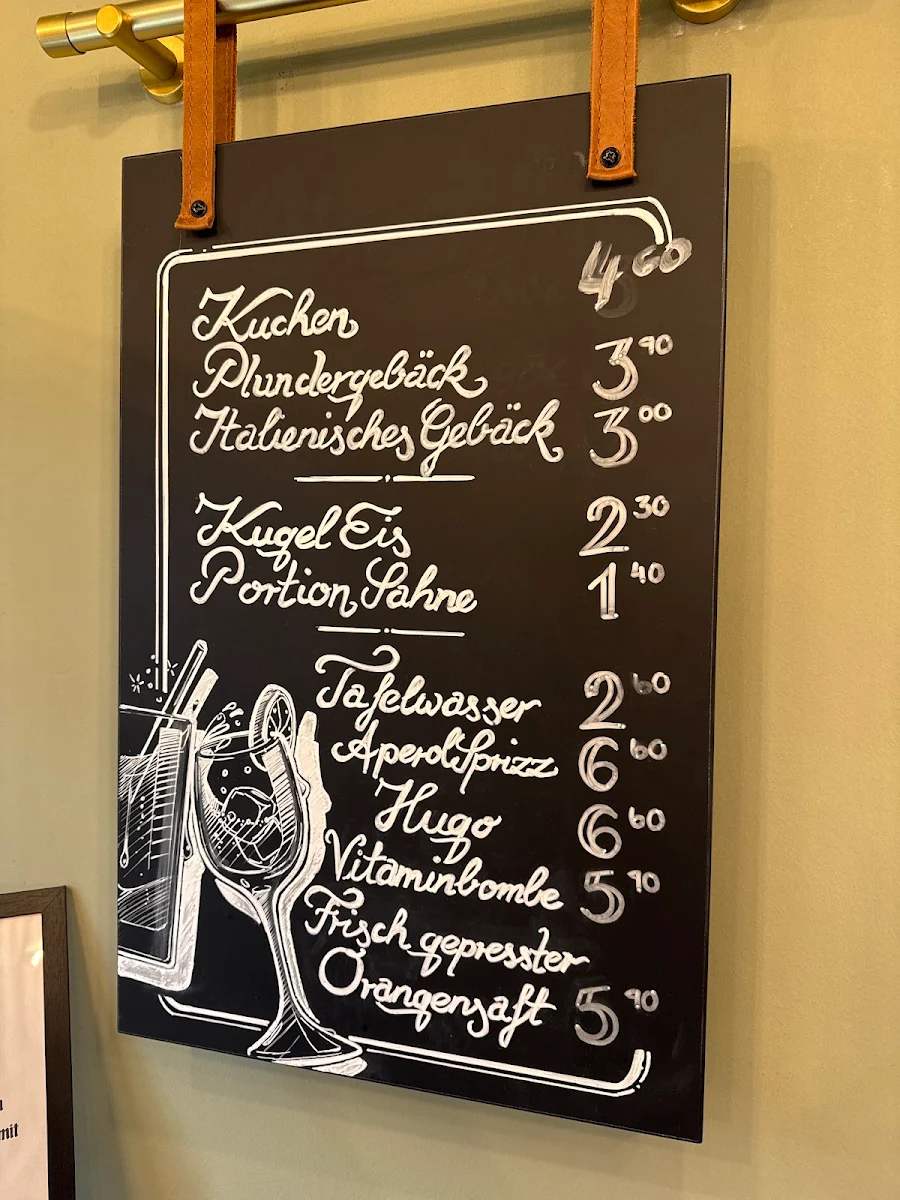 Kuchen 4 60
Plundergebäck 3 90
Italienisches Gebäck 3 00
Kugel Eis 2 30
Portion Sahne 1 40
Tafelwasser 2 60
Aperol Sprizz 6 60
Hugo 6 60
Vitaminbombe 5 90
Frisch gepresster
Orangensaft 5 90
mit